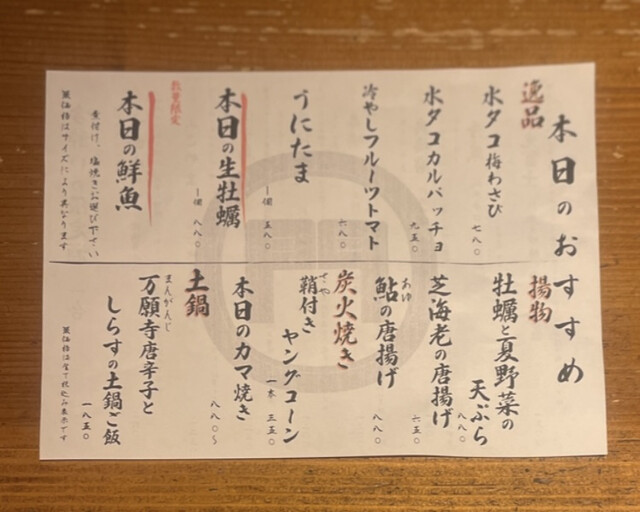 本日のおすすめ
逸品
水タコ梅わさび
七八〇
水タコカルパッチョ
九五〇
冷やしフルーツトマト
六八〇
うにたま
一個 五八〇
本日の生牡蠣
一個 八八〇
数量限定
本日の鮮魚
煮付け、塩焼きお選び下さい
※価格はサイズにより異なります
揚物
牡蠣と夏野菜の
天ぷら
八八〇
芝海老の唐揚げ
六五〇
あゆ
鮎の唐揚げ
八八〇
炭火焼き
さや
鞘付き
ヤングコーン
一本 三五〇
本日のカマ焼き
八八〇～
土鍋
まんがんじ
万願寺唐辛子と
しらすの土鍋ご飯
一八五〇
※価格は全て税込み表示です